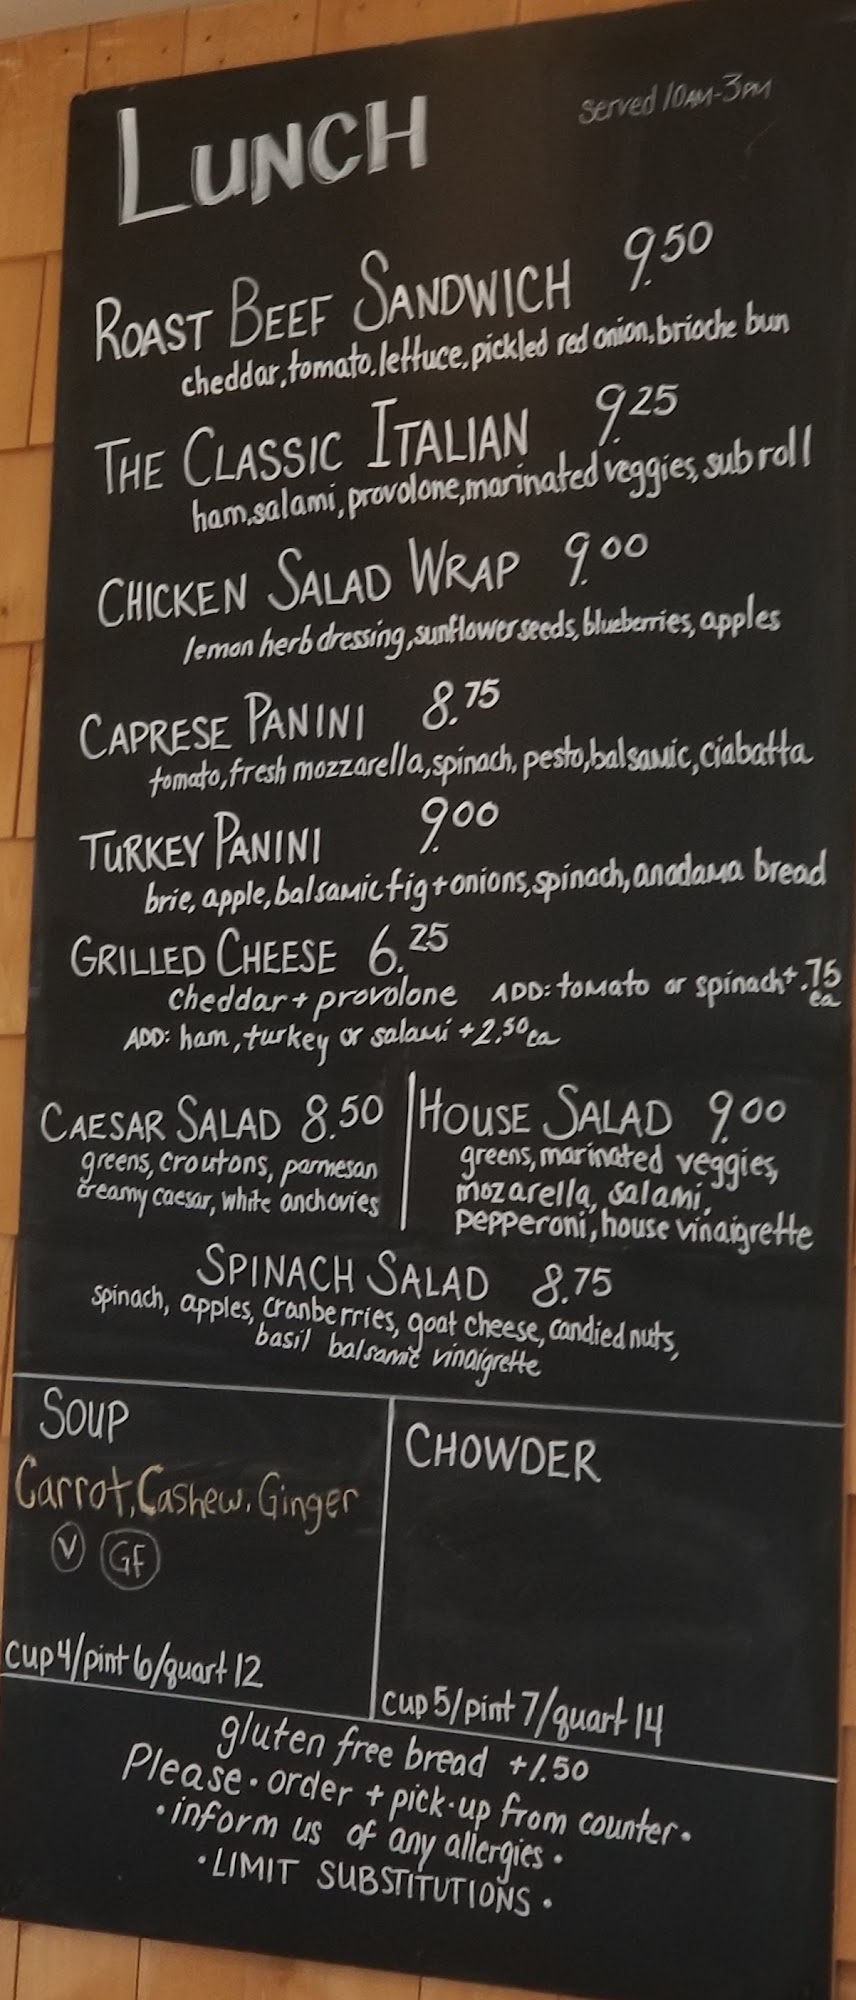 LUNCH
served 10AM-3PM
ROAST BEEF SANDWICH 9.50
cheddar, tomato, lettuce, pickled red onion, brioche bun
THE CLASSIC ITALIAN 9.25
ham, salami, provolone, marinated veggies, sub roll
CHICKEN SALAD WRAP 9.00
lemon herb dressing, sunflower seeds, blueberries, apples
CAPRESE PANINI 8.75
tomato, fresh mozzarella, spinach, pesto, balsamic, ciabatta
TURKEY PANINI 9.00
brie, apple, balsamic fig + onions, spinach, anadama bread
GRILLED CHEESE 6.25
cheddar + provolone ADD: tomato or spinach +.75 ea
ADD: ham, turkey or salami +2.50 ea
CAESAR SALAD 8.50
greens, croutons, parmesan
creamy caesar, white anchovies
HOUSE SALAD 9.00
greens, marinated veggies,
mozarella, salami,
pepperoni, house vinaigrette
SPINACH SALAD 8.75
spinach, apples, cranberries, goat cheese, candied nuts,
basil balsamic vinaigrette
SOUP
Carrot, Cashew, Ginger
V GF
cup 4/pint 6/quart 12
CHOWDER
cup 5/pint 7/quart 14
gluten free bread +1.50
Please • order + pick-up from counter •
• inform us of any allergies •
• LIMIT SUBSTITUTIONS •